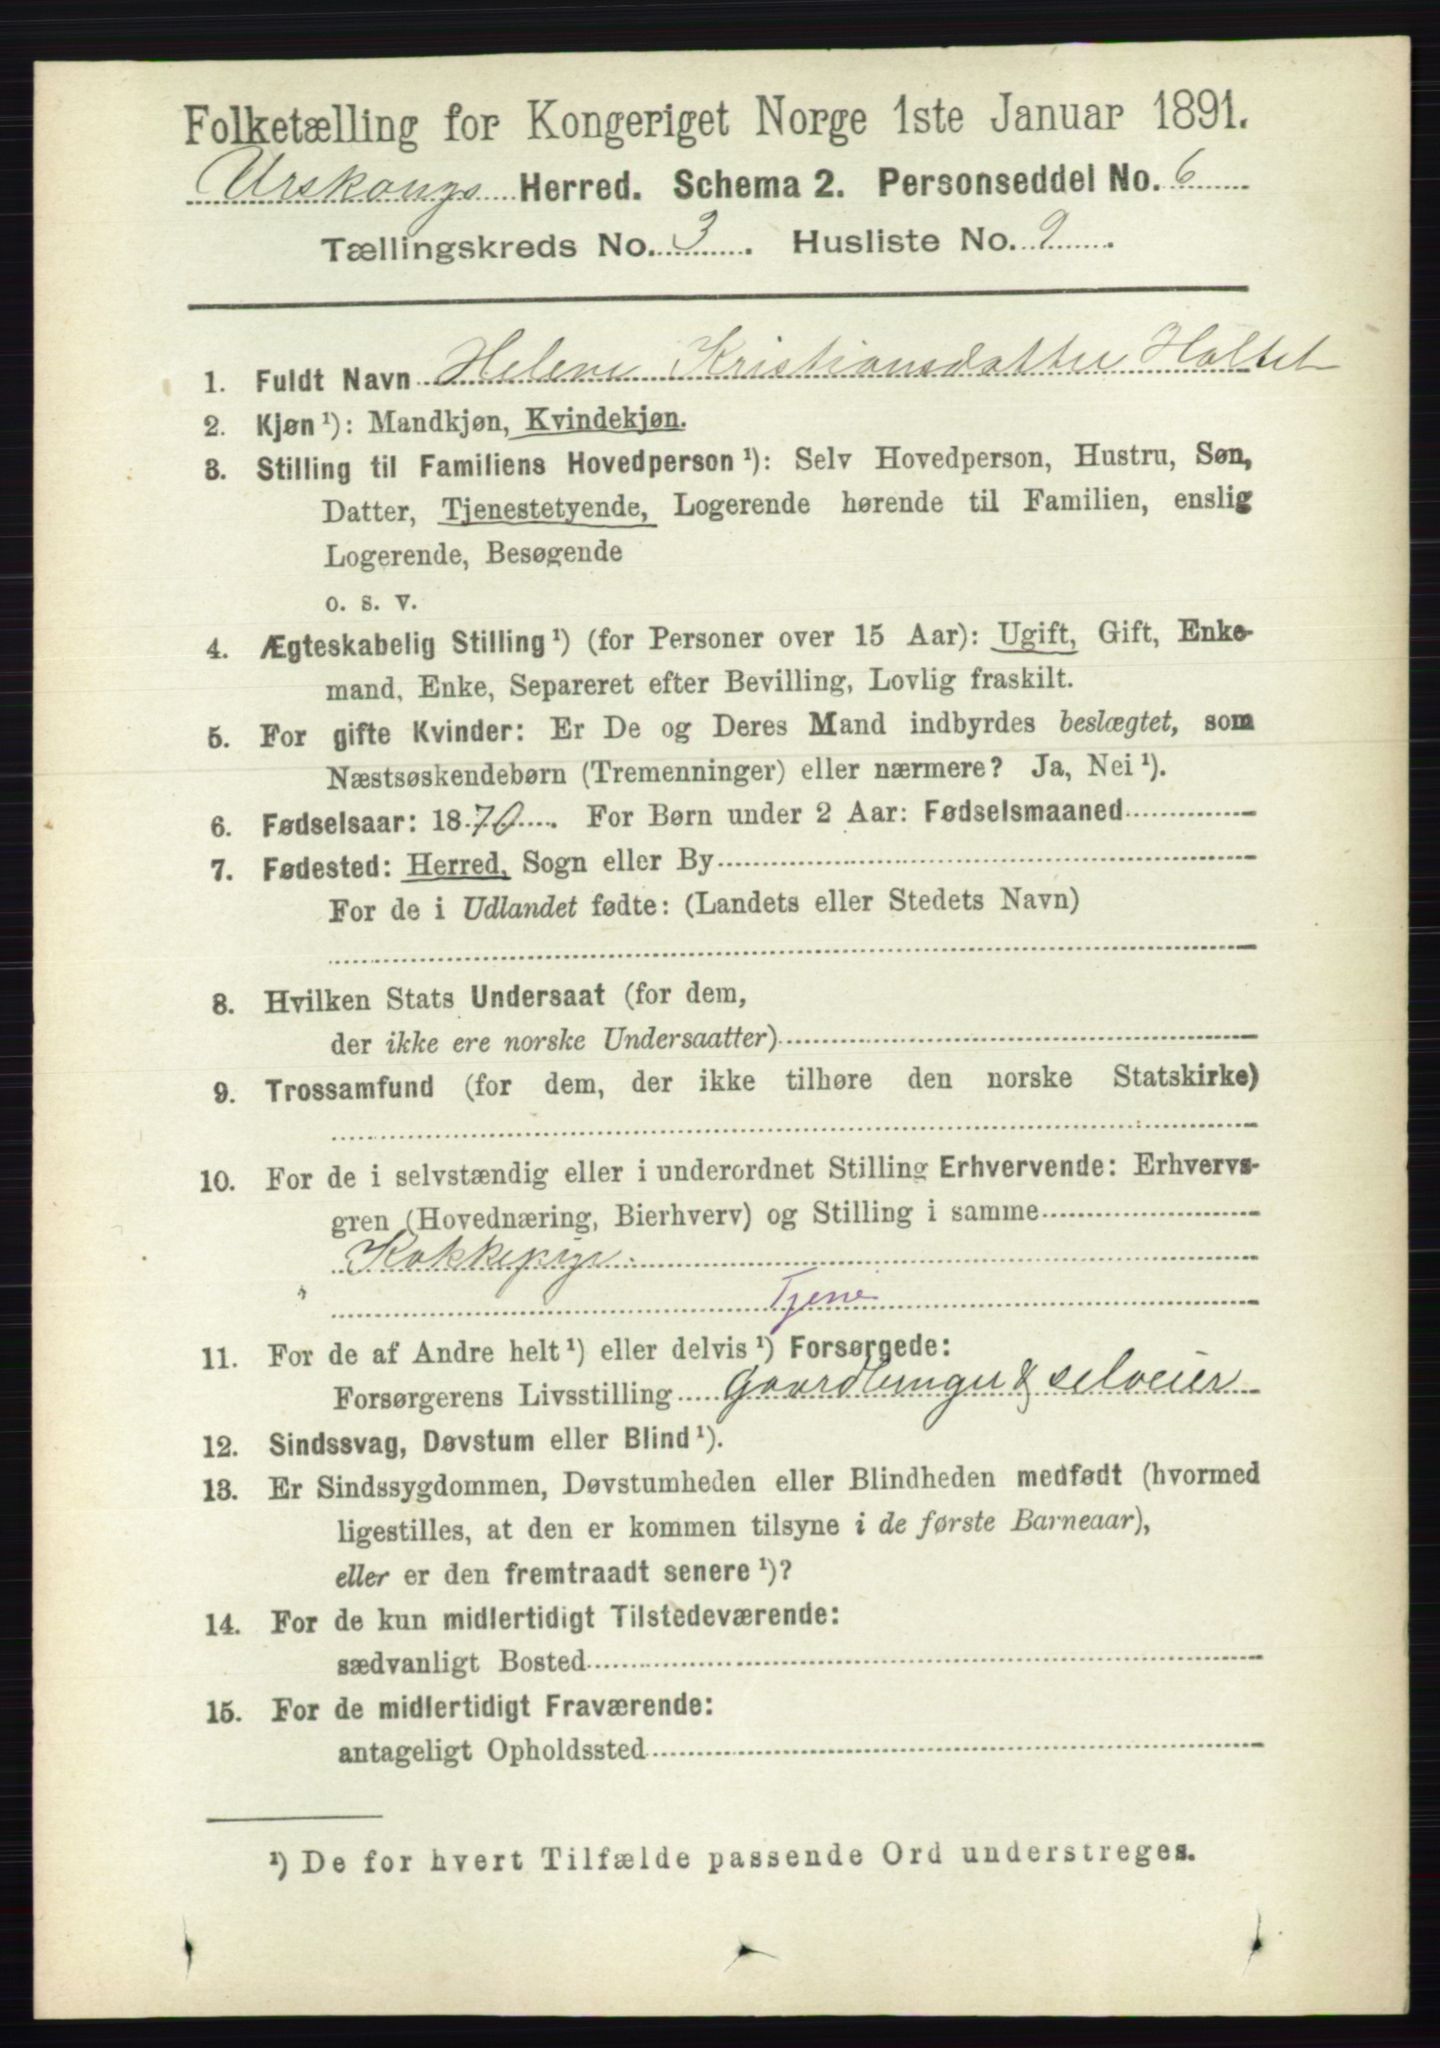 Folketælling for Kongeriget Norge 1ste Januar 1891.
Urskougs Herred. Schema 2. Personseddel No. 6
Tællingskreds No. 3. Husliste No. 9.
1. Fuldt Navn Helene Kristiansdatter Holtet
2. Kjøn ¹): Mandkjøn, Kvindekjøn.
3. Stilling til Familiens Hovedperson ¹): Selv Hovedperson, Hustru, Søn,
Datter, Tjenestetyende, Logerende hørende til Familien, enslig
Logerende, Besøgende
o. s. v.
4. Ægteskabelig Stilling ¹) (for Personer over 15 Aar): Ugift, Gift, Enke-
mand, Enke, Separeret efter Bevilling, Lovlig fraskilt.
5. For gifte Kvinder: Er De og Deres Mand indbyrdes beslægtet, som
Næstsøskendebørn (Tremenninger) eller nærmere? Ja, Nei ¹).
6. Fødselsaar: 1870. For Børn under 2 Aar: Fødselsmaaned
7. Fødested: Herred, Sogn eller By
For de i Udlandet fødte: (Landets eller Stedets Navn)
8. Hvilken Stats Undersaat (for dem,
der ikke ere norske Undersaatter)
9. Trossamfund (for dem, der ikke tilhøre den norske Statskirke)
10. For de i selvstændig eller i underordnet Stilling Erhvervende: Erhvervs-
gren (Hovednæring, Bierhverv) og Stilling i samme
Kokkepige
Tjene
11. For de af Andre helt ¹) eller delvis ¹) Forsørgede:
Forsørgerens Livsstilling Gaardbruger & selveier
12. Sindssvag, Døvstum eller Blind ¹).
13. Er Sindssygdommen, Døvstumheden eller Blindheden medfødt (hvormed
ligestilles, at den er kommen tilsyne i de første Barneaar),
eller er den fremtraadt senere ¹)?
14. For de kun midlertidigt Tilstedeværende:
sædvanligt Bosted
15. For de midlertidigt Fraværende:
antageligt Opholdssted
¹) De for hvert Tilfælde passende Ord understreges.